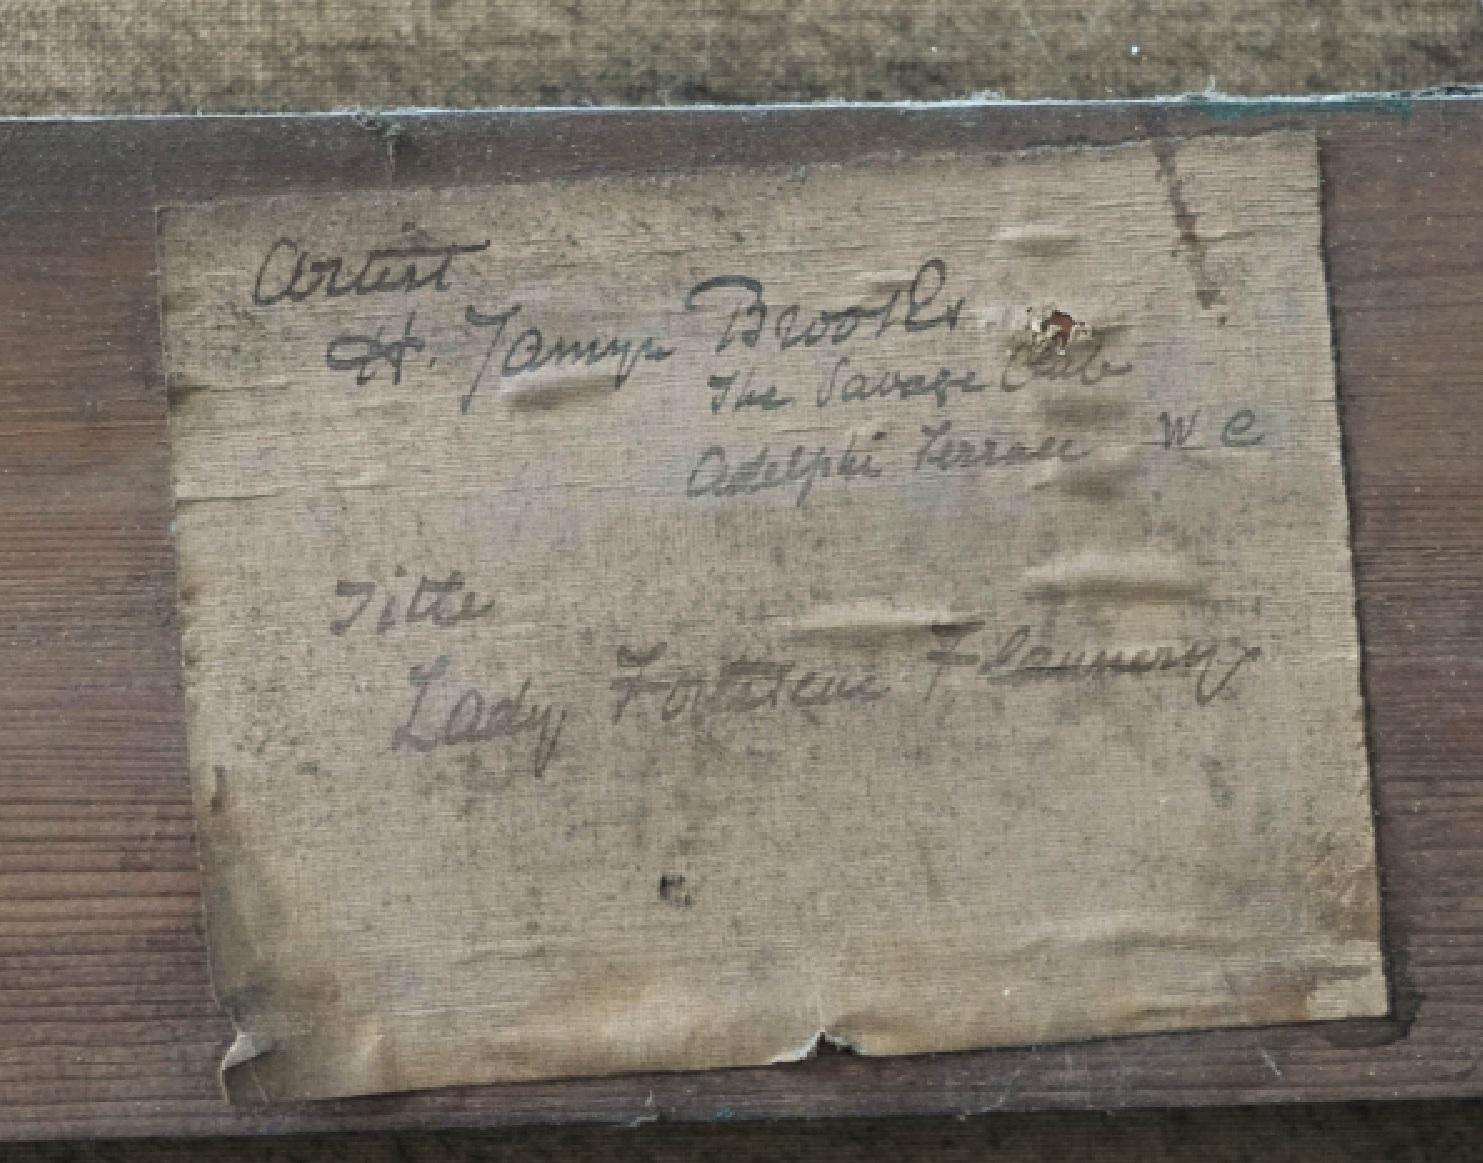 Artist
H. Jamyn Brooks
The Savage Club
Adelphi Terrace W C
Title
Lady Fortescue Flannery